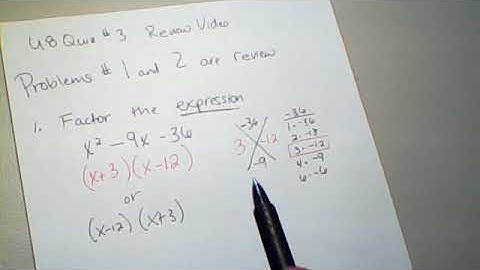 U8 Quiz # 3 Review Video
Problems # 1 and 2 are review
1. Factor the expression
x² - 9x - 36
(x+3)(x-12)
or
(x-12)(x+3)
-36
3 -12
-9
-36
1·-36
2·-18
3·-12
4·-9
6·-6